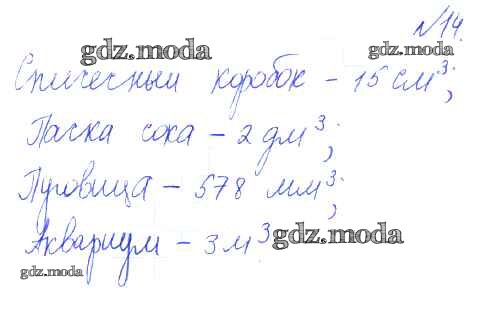 №14.
gdz.moda gdz.moda
Спичечный коробок – 15 см³;
Пачка сока – 2 дм³;
Пуговица – 578 мм³;
Аквариум – 3 м³ gdz.moda
gdz.moda